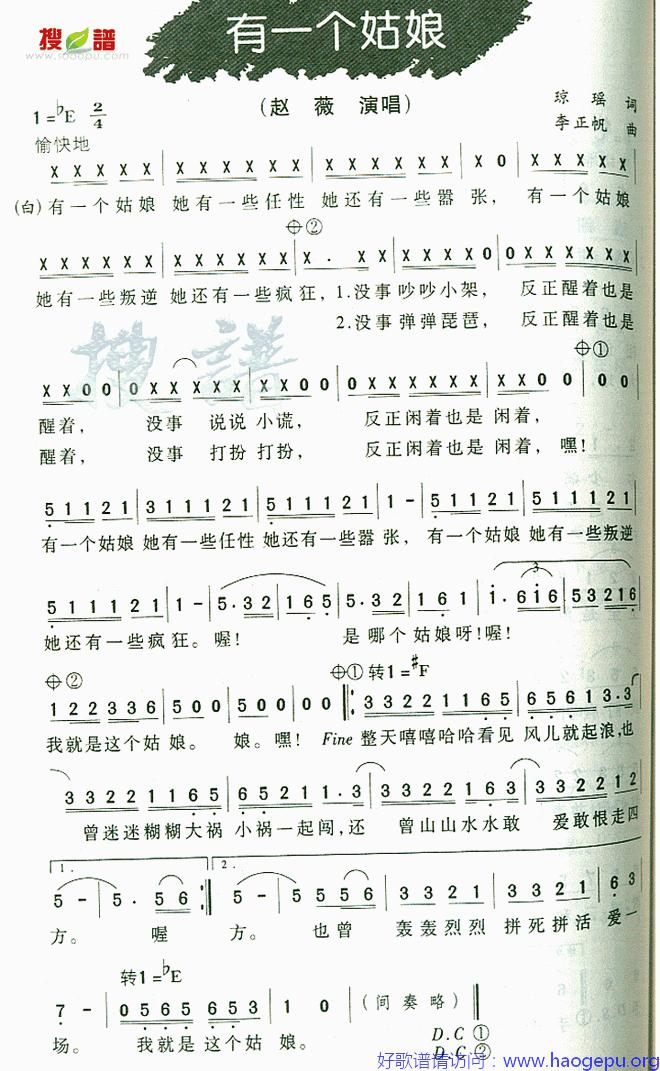 搜譜
www.sooopu.com
有一个姑娘
(赵 薇 演唱)
1=♭E 2/4
琼 瑶 词
李正帆 曲
愉快地
X X X X X | X X X X X X | X X X X X X | X 0 | X X X X X
(白)有一个姑娘 她有一些任性 她还有一些嚣 张, 有一个姑娘
⊕②
X X X X X X | X X X X X X | X . X X | X X X X X 0 | 0 X X X X X X
她有一些叛逆 她还有一些疯狂, 1.没事吵吵小架, 反正醒着也是
2.没事弹弹琵琶, 反正醒着也是
⊕①
X X 0 0 | 0 X X X X X | X X 0 0 | 0 X X X X X X | X X 0 | 0 0
醒着, 没事 说说 小谎, 反正闲着也是 闲着,
醒着, 没事 打扮 打扮, 反正闲着也是 闲着, 嘿!
5 1 1 2 1 | 3 1 1 1 2 1 | 5 1 1 1 2 1 | 1 - | 5 1 1 2 1 | 5 1 1 1 2 1
有一个姑娘 她有一些任性 她还有一些嚣 张, 有一个姑娘 她有一些叛逆
5 1 1 1 2 1 | 1 - | 5 . 3 2 | 1 6 5 | 5 . 3 2 | 1 6 1 | 1 . 6 1 6 | 5 3 2 1 6
3
她还有一些疯狂。 喔! 是哪个姑娘呀!喔!
⊕② ⊕① 转1=♯F
1 2 2 3 3 6 | 5 0 0 | 5 0 0 | 0 0 ‖: 3 3 2 2 1 1 6 5 | 6 5 6 1 3 . 3
我就是这个姑 娘。 娘。嘿! Fine 整天嘻嘻哈哈看见 风儿就起浪,也
3 3 2 2 1 1 6 5 | 6 5 2 1 1 . 3 | 3 3 2 2 1 1 6 | 3 3 2 2 1 2
曾迷迷糊糊大祸 小祸一起闯,还 曾山山水水敢 爱敢恨走四
1. 2.
5 - | 5 . 5 6 :‖ 5 - | 5 5 5 6 | 3 3 2 1 | 3 3 2 1 | 6 3
方。 喔 方。 也曾 轰轰烈烈 拼死拼活 爱一
转1=♭E
7 - | 0 5 6 5 6 5 3 | 1 0 | (间奏略) ‖
场。 我就是这个姑 娘。
D.C ①
D.C ②
好歌谱请访问:www.haogepu.org